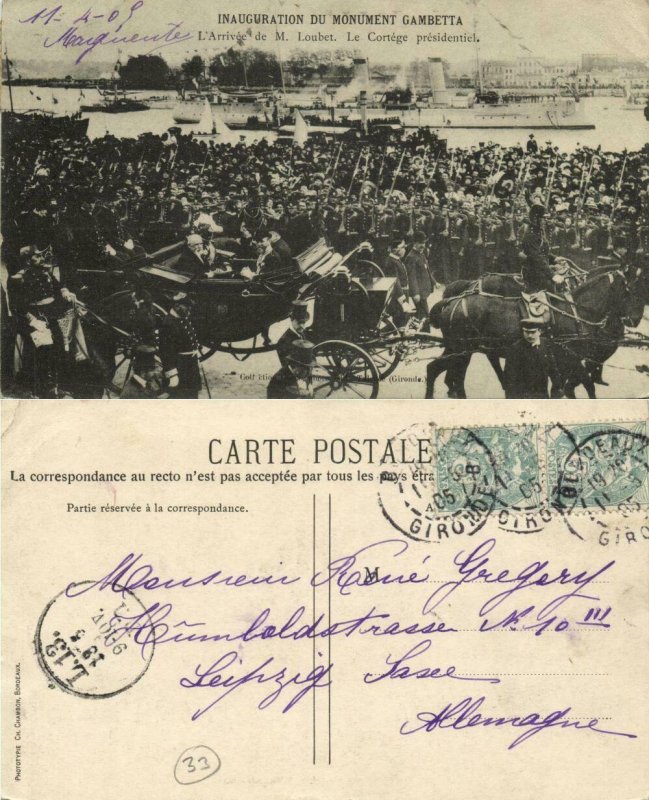 INAUGURATION DU MONUMENT GAMBETTA
11-4-05
L'Arrivée de M. Loubet. Le Cortège présidentiel.
Marguerite
(Gironde.)
CARTE POSTALE
La correspondance au recto n'est pas acceptée par tous les pays
Partie réservée à la correspondance.
BORDEAUX
GIRONDE
GIRONDE
M
Monsieur René Gregory
Humboldstrasse N. 10 III
Leipzig Saxe
Allemagne
L.13.
PHOTOTYPIE CH. CHAMBON, BORDEAUX.
33